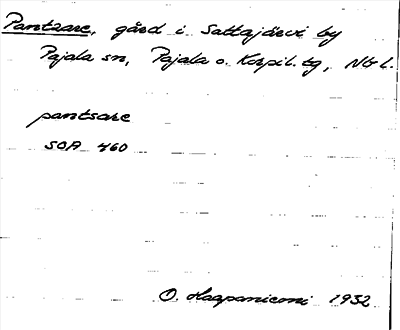 Pantzare, gård i Sattajärvi by
Pajala sn, Pajala o. Korpil. tg, Nbt l.
pantsare
SOA 460
O. Haapaniemi 1932